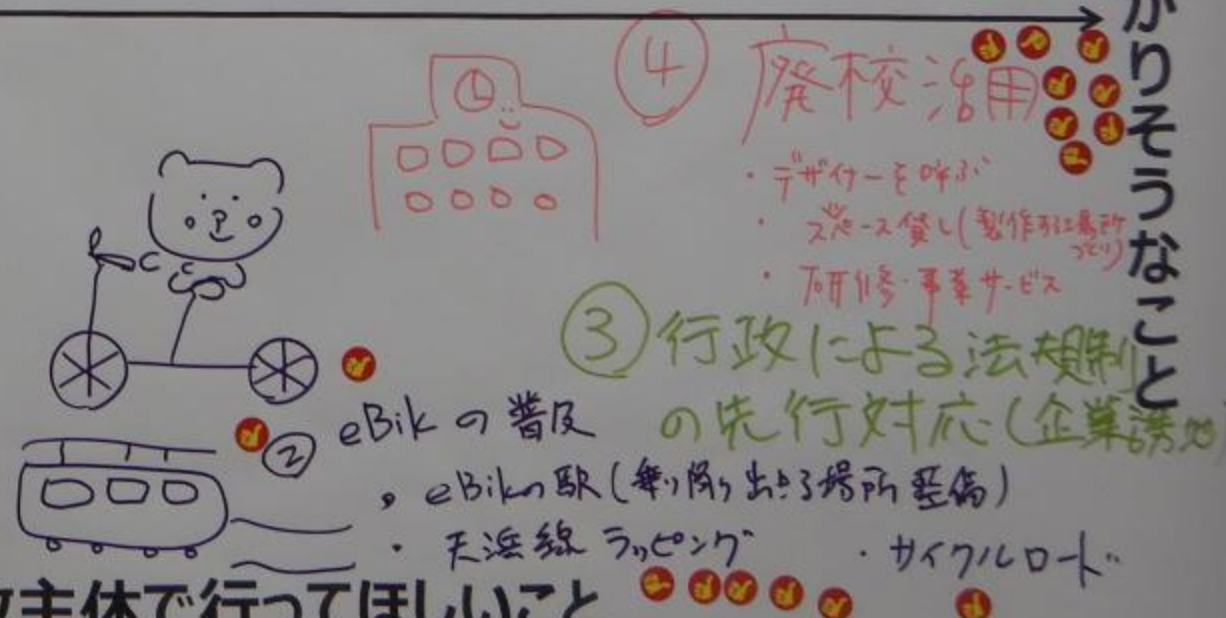 かりそうなこと
④ 廃校活用
・デザイナーを呼ぶ
・スペース貸し(製作する場所づくり)
・研修・事業サービス
③ 行政による法規制
の先行対応(企業誘致)
② eBikの普及
・eBikの駅(乗り降り出来る場所整備)
・天浜線ラッピング ・サイクルロード
主体で行ってほしいこと